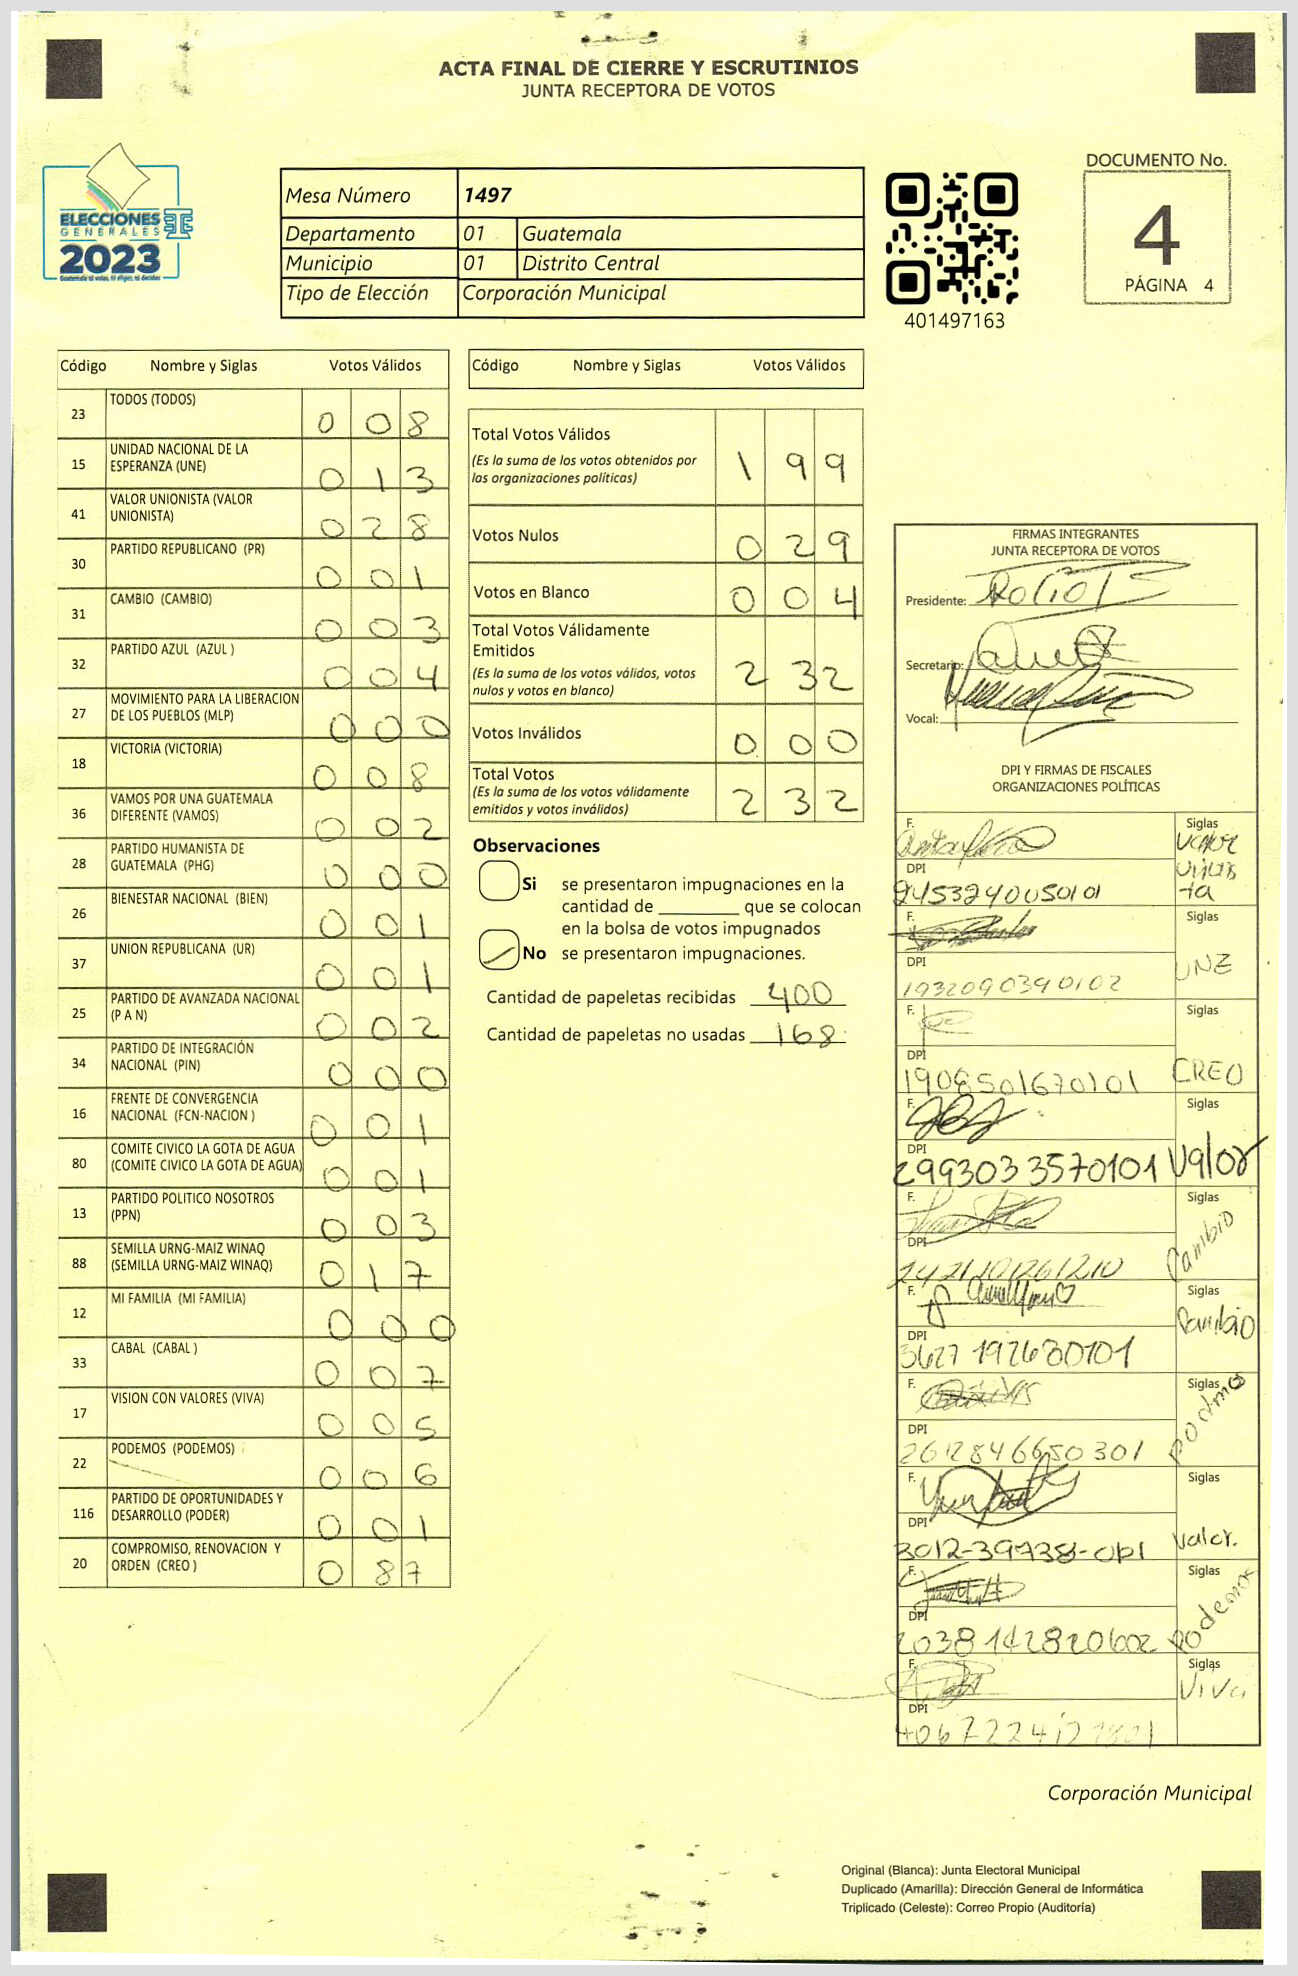 ACTA FINAL DE CIERRE Y ESCRUTINIOS
JUNTA RECEPTORA DE VOTOS
ELECCIONES
GENERALES
2023
Mesa Número 1497
Departamento 01 Guatemala
Municipio 01 Distrito Central
Tipo de Elección Corporación Municipal
401497163
DOCUMENTO No.
4
PÁGINA 4
Código Nombre y Siglas Votos Válidos
23 TODOS (TODOS) 0 0 8
15 UNIDAD NACIONAL DE LA ESPERANZA (UNE) 0 1 3
41 VALOR UNIONISTA (VALOR UNIONISTA) 0 2 8
30 PARTIDO REPUBLICANO (PR) 0 0 1
31 CAMBIO (CAMBIO) 0 0 3
32 PARTIDO AZUL (AZUL ) 0 0 4
27 MOVIMIENTO PARA LA LIBERACION DE LOS PUEBLOS (MLP) 0 0 0
18 VICTORIA (VICTORIA) 0 0 8
36 VAMOS POR UNA GUATEMALA DIFERENTE (VAMOS) 0 0 2
28 PARTIDO HUMANISTA DE GUATEMALA (PHG) 0 0 0
26 BIENESTAR NACIONAL (BIEN) 0 0 1
37 UNION REPUBLICANA (UR) 0 0 1
25 PARTIDO DE AVANZADA NACIONAL (P A N) 0 0 2
34 PARTIDO DE INTEGRACIÓN NACIONAL (PIN) 0 0 0
16 FRENTE DE CONVERGENCIA NACIONAL (FCN-NACION ) 0 0 1
80 COMITE CIVICO LA GOTA DE AGUA (COMITE CIVICO LA GOTA DE AGUA) 0 0 1
13 PARTIDO POLITICO NOSOTROS (PPN) 0 0 3
88 SEMILLA URNG-MAIZ WINAQ (SEMILLA URNG-MAIZ WINAQ) 0 1 7
12 MI FAMILIA (MI FAMILIA) 0 0 0
33 CABAL (CABAL ) 0 0 7
17 VISION CON VALORES (VIVA) 0 0 5
22 PODEMOS (PODEMOS) 0 0 6
116 PARTIDO DE OPORTUNIDADES Y DESARROLLO (PODER) 0 0 1
20 COMPROMISO, RENOVACION Y ORDEN (CREO ) 0 8 7
Código Nombre y Siglas Votos Válidos
Total Votos Válidos 1 9 9
(Es la suma de los votos obtenidos por
las organizaciones políticas)
Votos Nulos 0 2 9
Votos en Blanco 0 0 4
Total Votos Válidamente
Emitidos
(Es la suma de los votos válidos, votos 2 3 2
nulos y votos en blanco)
Votos Inválidos 0 0 0
Total Votos
(Es la suma de los votos válidamente 2 3 2
emitidos y votos inválidos)
Observaciones
Si se presentaron impugnaciones en la
cantidad de ________ que se colocan
en la bolsa de votos impugnados
No se presentaron impugnaciones.
Cantidad de papeletas recibidas 400
Cantidad de papeletas no usadas 168
FIRMAS INTEGRANTES
JUNTA RECEPTORA DE VOTOS
Presidente:
Secretario:
Vocal:
DPI Y FIRMAS DE FISCALES
ORGANIZACIONES POLÍTICAS
F. Siglas
DPI
2453240050101
F. Siglas
DPI UNE
1932090390102
F. Siglas
DPI CREO
1908501670101
F. Siglas
DPI
2993033570101 Valor
F. Siglas
DPI Cambio
F. Siglas
DPI Cambio
3627192630101
F. Siglas
DPI
2612846650301
F. Siglas
DPI Valor.
F. Siglas
DPI Podemos
F. Siglas
DPI Viva
Corporación Municipal
Original (Blanca): Junta Electoral Municipal
Duplicado (Amarilla): Dirección General de Informática
Triplicado (Celeste): Correo Propio (Auditoría)